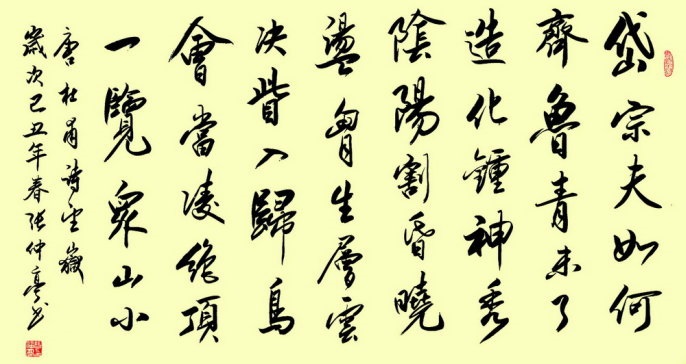 岱宗夫如何
齊魯青未了
造化鍾神秀
陰陽割昏曉
盪胷生層雲
决眥入歸鳥
會當凌絶頂
一覽衆山小
唐杜甫詩望嶽
歲次己丑年春張仲亭書